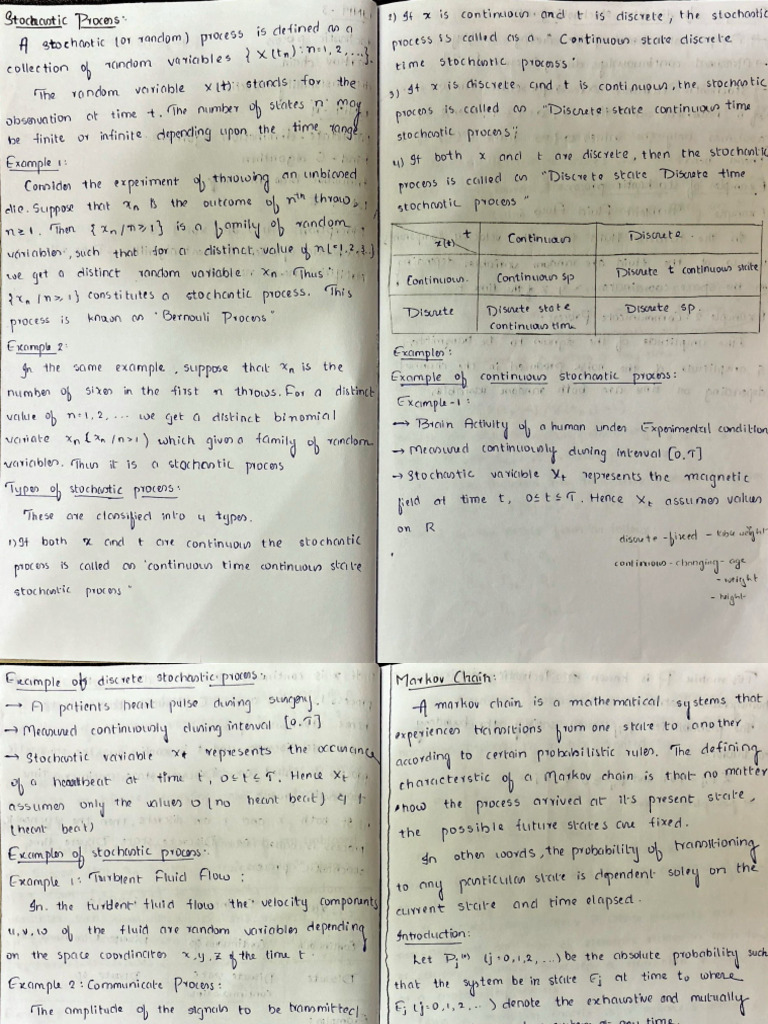 Stochastic Process:
A stochastic (or random) process is defined as a
collection of random variables {X(tn): n=1,2,...}.
The random variable X(t) stands for the
observation at time t. The number of states 'n' may
be finite or infinite depending upon the time range.
Example 1:
Consider the experiment of throwing an unbiased
die. Suppose that xn is the outcome of nth throws,
n≥1. Then {xn/n≥1} is a family of random
variables, such that for a distinct value of n(=1,2,3..)
we get a distinct random variable xn. Thus
{xn/n≥1} constitutes a stochastic process. This
process is known as "Bernouli Process"
Example 2:
In the same example, suppose that xn is the
number of sixes in the first n throws. For a distinct
value of n=1,2,... we get a distinct binomial
variate xn{xn/n≥1) which gives a family of random
variables. Thus it is a stochastic process
Types of stochastic process:
These are classified into 4 types.
1) If both x and t are continuous the stochastic
process is called an "continuous time continuous state
stochastic process"
2) If x is continuous and t is discrete, the stochastic
process is called as a "Continuous state discrete
time stochastic process"
3) If x is discrete and t is continuous, the stochastic
process is called an "Discrete state continuous time
stochastic process";
4) If both x and t are discrete, then the stochastic
process is called an "Discrete state Discrete time
stochastic process"
t
x(t) Continuous Discrete
Continuous. Continuous sp Discrete t continuous state
Discrete Discrete state Discrete sp.
continuous time
Examples:
Example of continuous stochastic process:
Example-1:
→ Brain Activity of a human under Experimental condition
→ Measured continuously during interval [0,T]
→ Stochastic variable Xt represents the magnetic
field at time t, 0≤t≤T. Hence Xt assumes values
on R
discrete - fixed -
continuous - changing - age
- weight
- height
Example of discrete stochastic process:
→ A patients heart pulse during surgery.
→ Measured continuously during interval [0,T]
→ Stochastic variable xt represents the occurance
of a heartbeat at time t, 0≤t≤T. Hence Xt
assumes only the values 0 (no heart beat) & 1
(heart beat)
Examples of stochastic process:
Example 1: Turblent Fluid Flow:
In the turblent fluid flow the velocity components
u,v,w of the fluid are random variables depending
on the space coordinates x,y,z & the time t
Example 2: Communicate Process:
The amplitude of the signals to be transmitted
Markov Chain:
A markov chain is a mathematical systems that
experiences transitions from one state to another
according to certain probabilistic rules. The defining
characterstic of a Markov chain is that no matter
how the process arrived at it's present state,
the possible future states are fixed.
In other words, the probability of transitioning
to any particular state is dependent soley on the
current state and time elapsed.
Introduction:
Let Pj(n) (j=0,1,2,...) be the absolute probability such
that the system be in state Ej at time to where
Ej (j=0,1,2,...) denote the exhaustive and mutually
time.